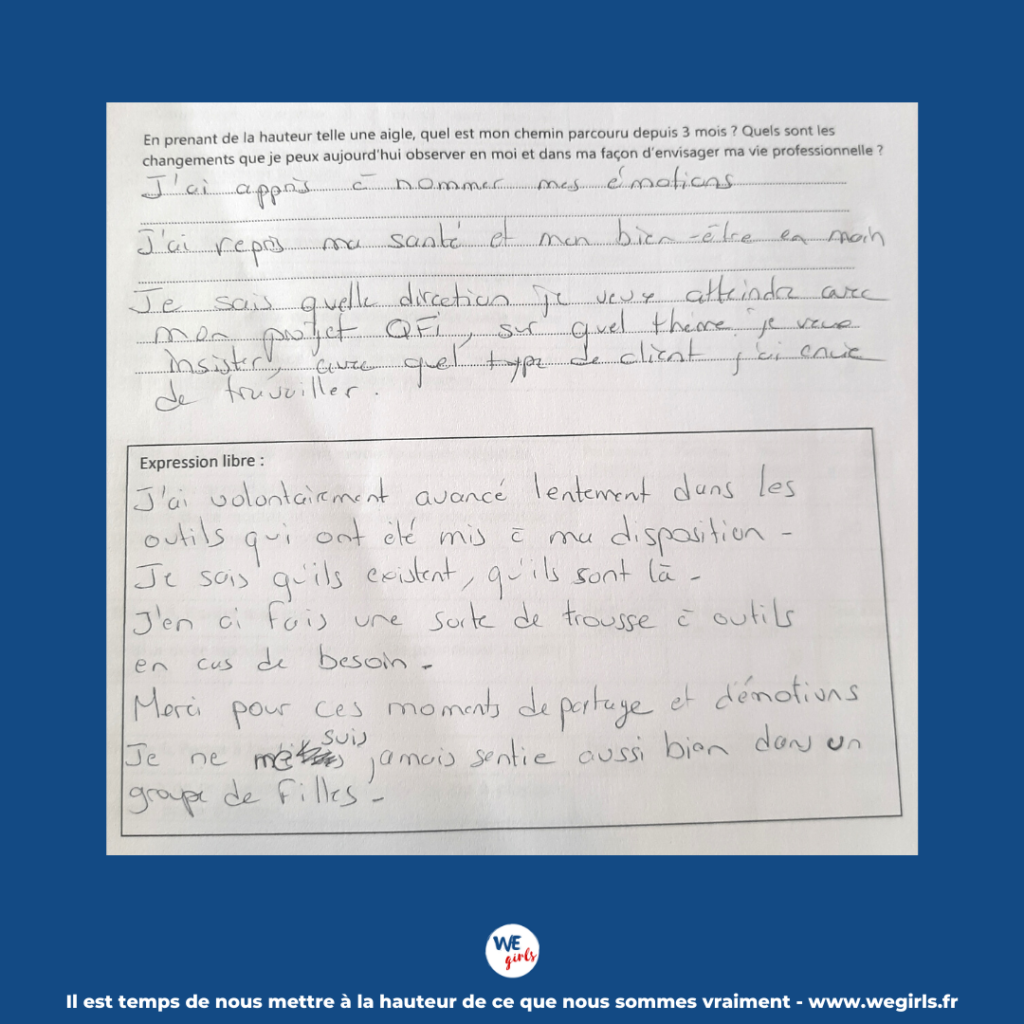 En prenant de la hauteur telle une aigle, quel est mon chemin parcouru depuis 3 mois ? Quels sont les
changements que je peux aujourd'hui observer en moi et dans ma façon d'envisager ma vie professionnelle ?
J'ai appris à nommer mes émotions
J'ai repris ma santé et mon bien-être en main
Je sais quelle direction je veux atteindre avec
mon projet QFi, sur quel thème je veux
insister, avec quel type de client j'ai envie
de travailler.
Expression libre :
J'ai volontairement avancé lentement dans les
outils qui ont été mis à ma disposition -
Je sais qu'ils existent, qu'ils sont là -
J'en ai fais une sorte de trousse à outils
en cas de besoin -
Merci pour ces moments de partage et d'émotions
Je ne me suis jamais sentie aussi bien dans un
groupe de filles -
WE
girls
Il est temps de nous mettre à la hauteur de ce que nous sommes vraiment - www.wegirls.fr